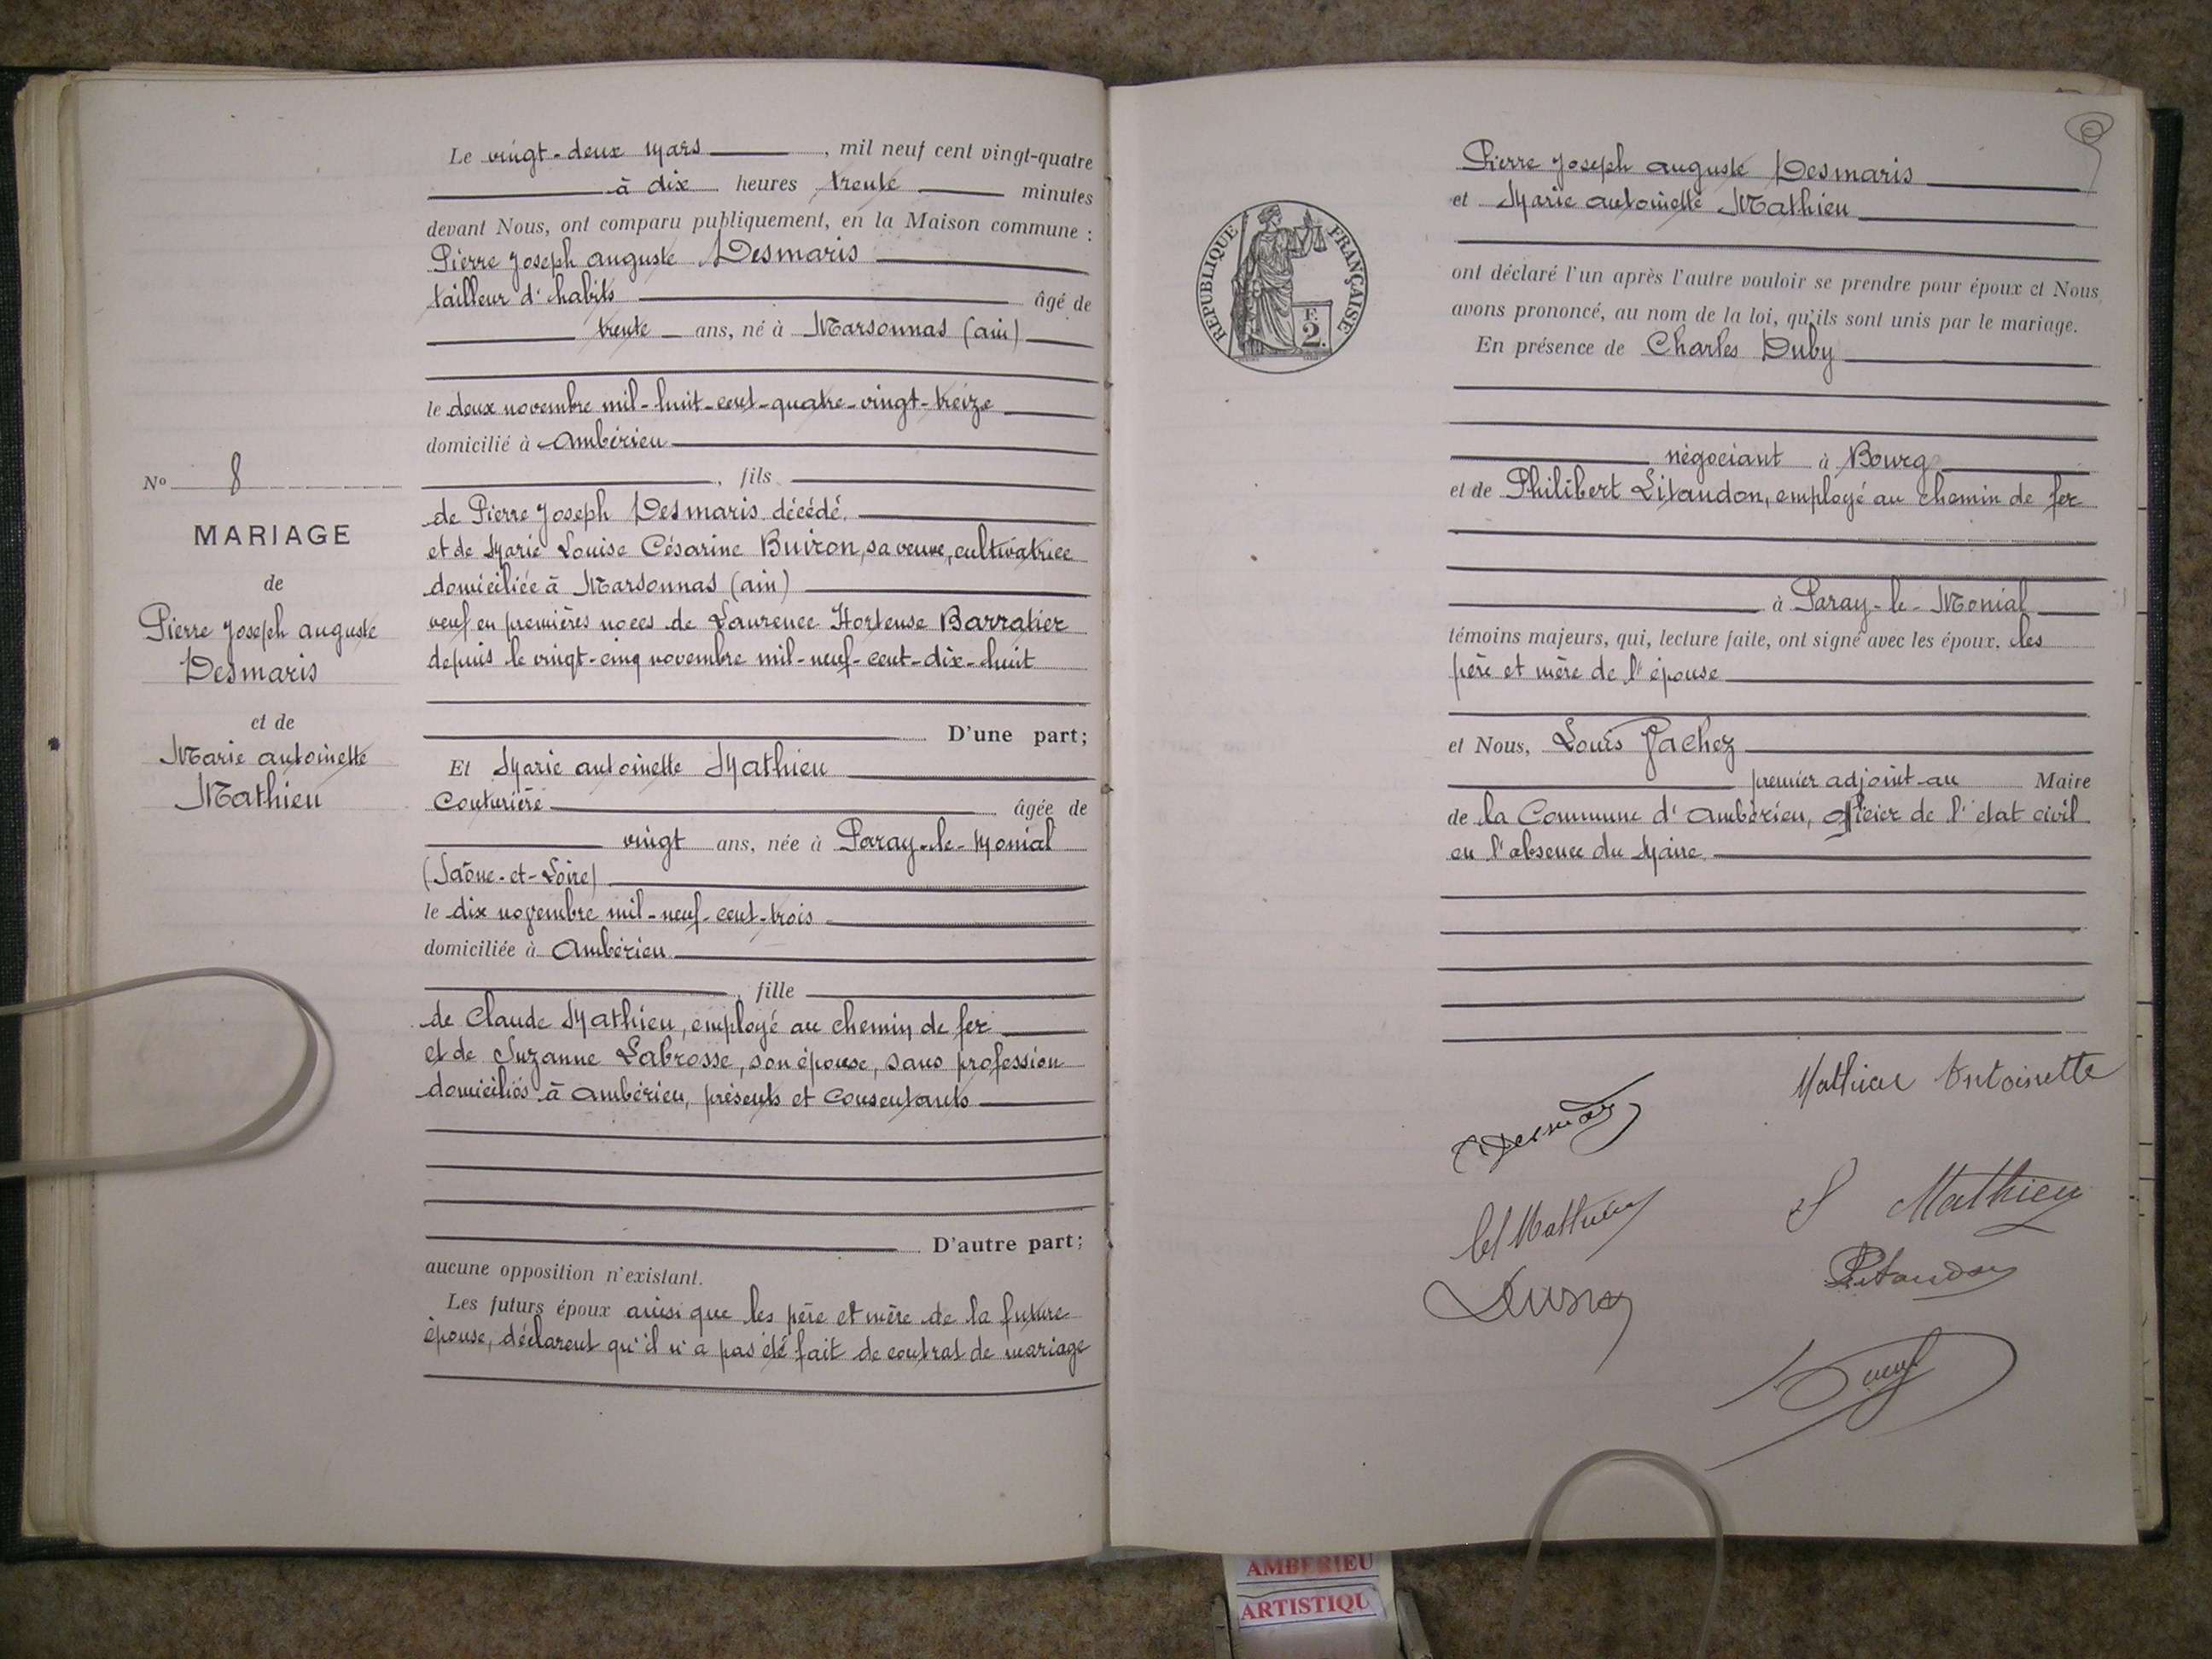 Le vingt-deux mars, mil neuf cent vingt-quatre
à dix heures trente minutes
devant Nous, ont comparu publiquement, en la Maison commune :
Pierre Joseph auguste Desmaris
tailleur d'habits âgé de
trente ans, né à Marsonnas (ain)
le deux novembre mil-huit-cent-quatre-vingt-treize
domicilié à Ambérieu
, fils
de Pierre Joseph Desmaris décédé.
et de Marie Louise Césarine Buiron, sa veuve, cultivatrice
domiciliée à Marsonnas (ain)
veuf en premières noces de Laurence Hortense Barratier
depuis le vingt-cinq novembre mil-neuf-cent-dix-huit
D'une part;
Et Marie antoinette Mathieu
Couturière âgée de
vingt ans, née à Paray-le-Monial
(Saône-et-Loire)
le dix novembre mil-neuf-cent-trois
domiciliée à Ambérieu
, fille
de Claude Mathieu, employé au chemin de fer
et de Suzanne Labrosse, son épouse, sans profession
domiciliés à Ambérieu, présents et consentants
D'autre part;
aucune opposition n'existant.
Les futurs époux ainsi que les père et mère de la future
épouse, déclarent qu'il n'a pas été fait de contrat de mariage
N° 8
MARIAGE
de
Pierre Joseph auguste
Desmaris
et de
Marie antoinette
Mathieu
Pierre Joseph auguste Desmaris
et Marie antoinette Mathieu
ont déclaré l'un après l'autre vouloir se prendre pour époux et Nous
avons prononcé, au nom de la loi, qu'ils sont unis par le mariage.
En présence de Charles Duby
négociant à Bourg
et de Philibert Litaudon, employé au chemin de fer
à Paray-le-Monial
témoins majeurs, qui, lecture faite, ont signé avec les époux, les
père et mère de l'épouse
et Nous, Louis
premier adjoint au Maire
de la Commune d'Ambérieu, officier de l'état civil
en l'absence du Maire.
RÉPUBLIQUE FRANÇAISE
F.
2.
Mathieu Antoinette
Cl Mathieu
S Mathieu
AMBERIEU
ARTISTIQU